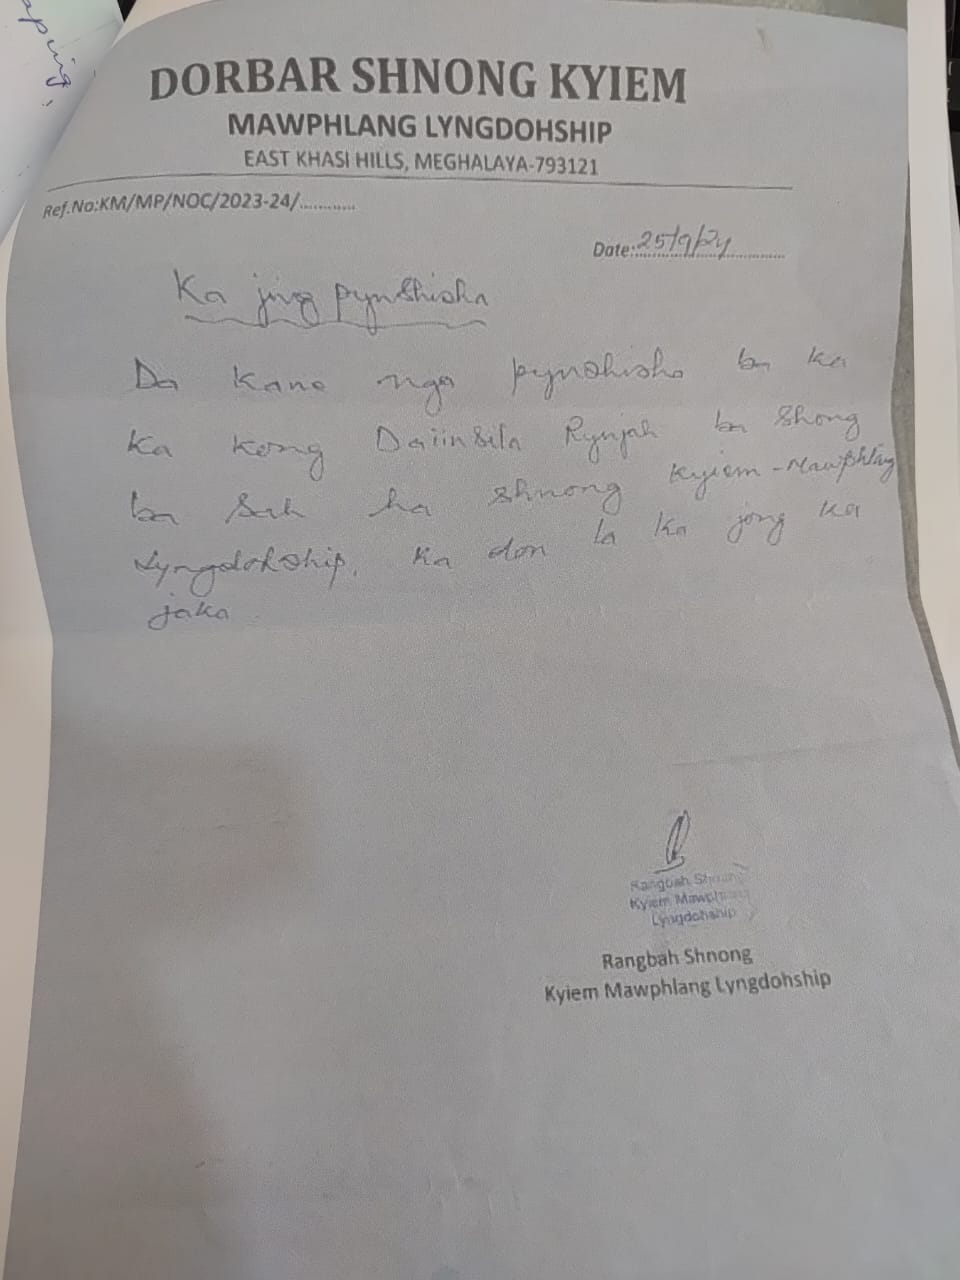 aping,
DORBAR SHNONG KYIEM
MAWPHLANG LYNGDOHSHIP
EAST KHASI HILLS, MEGHALAYA-793121
Ref.No:KM/MP/NOC/2023-24/............
Date:25/9/24
Ka jing pynshisha
Da kane nga pynshisha ba ka
Ka kong Daiinsila Rynjah ba shong
ba sah ha shnong Kyiem-Mawphlang
Lyngdohship. Ka don la ka jong ka
jaka.
Rangbah Shnong
Kyiem Mawphlang
Lyngdohship
Rangbah Shnong
Kyiem Mawphlang Lyngdohship